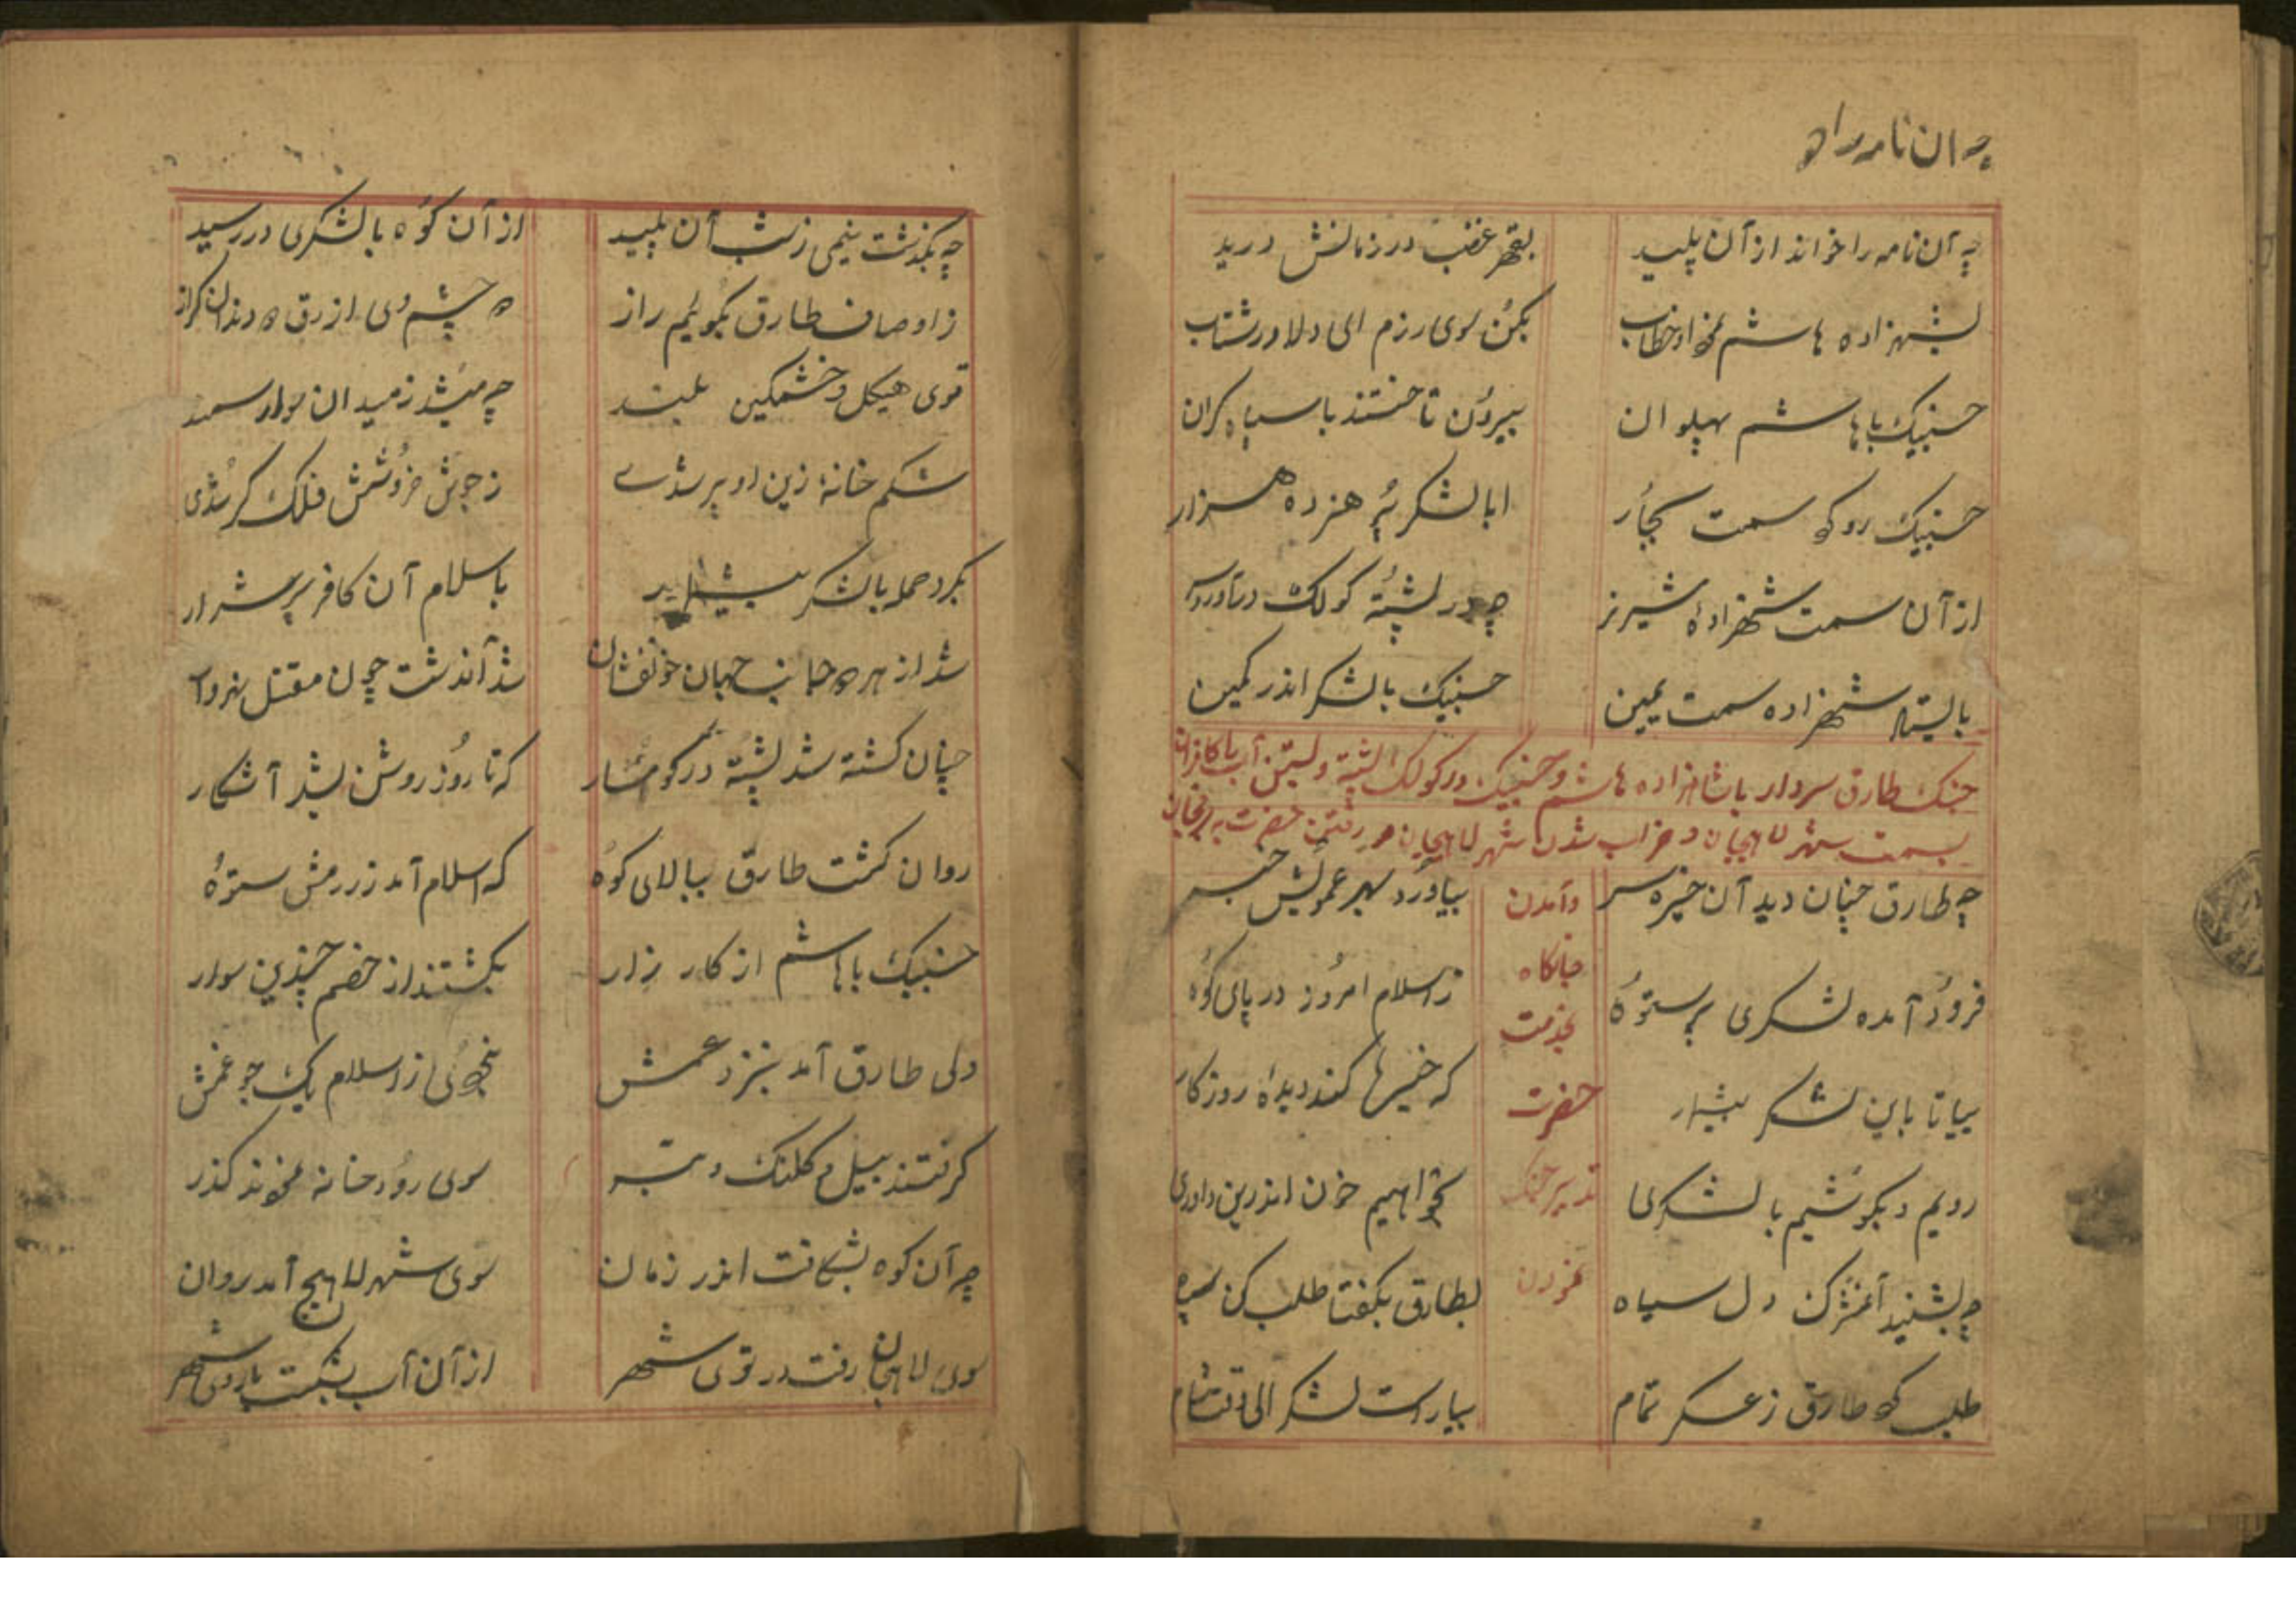 چه ان نامه را
چه آن نامه را خواند از آن پلید بقهر غضب در زمانش درید
بشهزاده هاشم نمود او خطاب بکن سوی رزم ای دلاور شتاب
حسنبیک باهاشم پهلوان بیرون تاختند با سپاه کران
حسنبیک رو کرد سمت یسار ابا لشکر پر هنر ده هزار
از آن سمت شهزادهٔ شیر نر چه در پشتهٔ کولک درآورد سر
بایستاد شهزاده سمت یمین حسنبیک با لشکر اندر کمین
جنک طارق سردار با شاهزاده هاشم و حسنبیک در کولک پشته و بستن آب با کافران
بسمت شهر لاهیجان و خراب شدن شهر لاهیجان و رفتن حضرت به
چه طارق چنان دید آن خیره سر بیاورد بهر عمویش خبر
وآمدن
جایکاه
بخدمت
حضرت
تدبیر جنک
نمودن
فرود آمده لشکری پر ستوه ز اسلام امروز در پای کوه
بیا تا باین لشکر بیشمار که خیرها کند دیدهٔ روزکار
رویم و بکوشیم با لشکری بخواهیم خون اندرین داوری
چه بشنید آن دل سیاه بطارق بکفتا طلب کن سپاه
طلب کرد طارق ز عسکر تمام بیاراست لشکر الی وقت شام
چه بکذشت نیمی ز شب آن پلید از آن کوه با لشکری در رسید
ز اوصاف طارق بکویم راز دو چشم وی ازرق دو دندان کراز
قوی هیکل و خشمکین بلند چه میشد ز میدان سوار سمند
شکم خانهٔ زین او پر شدے ز جوش خروشش فلک کر شدی
بکرد حمله با لشکر بیشمار باسلام آن کافر پر شرار
شد از هر دو جانب جهان خونفشان شد آندشت چون مقتل نهروان
چنان کشته شد پشته در کوهسار که تا روز روشن بشد آشکار
روان کشت طارق ببالای کوه که اسلام آمد ز رزمش ستوه
حسنبیک باهاشم از کار زار بکشتند از خصم چندین سوار
ولی طارق آمد بنزد عمش نخوردی ز اسلام یک جو غمش
کرفتند بیل و کلنک و تبر سوی رودخانه نمودند کذر
چه آن کوه بشکافت اندر زمان سوی شهر لاهیج آمد روان
سوی لاهجان رفت در توی شهر از آن آب بشکست باروی شهر